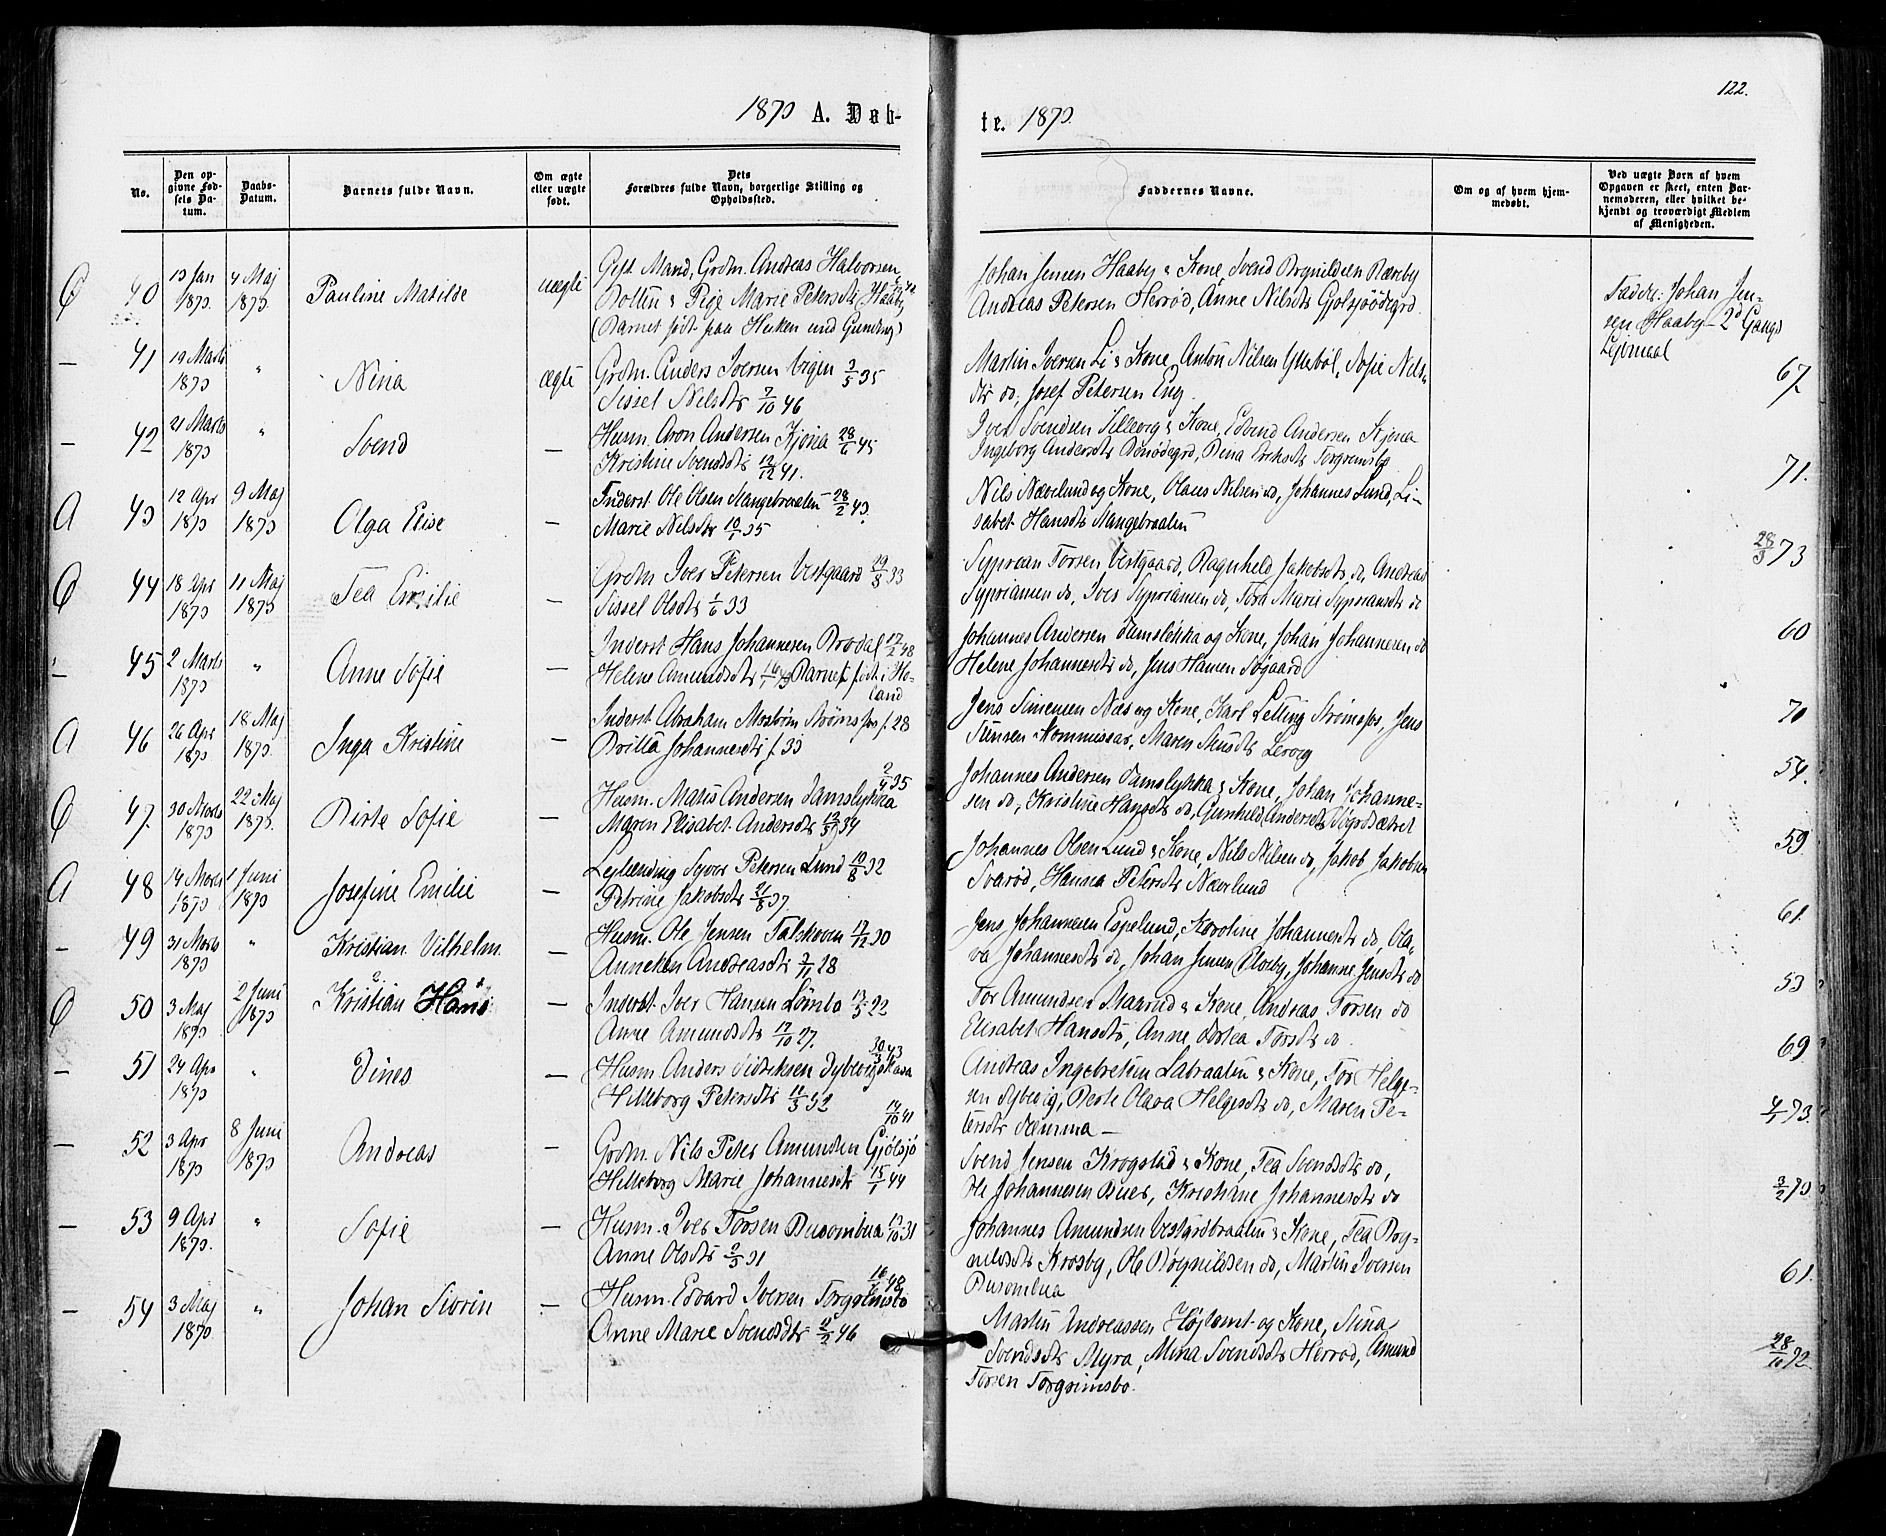 122.
1873 A. Døb-
te. 1873.
No.
Den op-
givne Fød-
sels Da-
tum.
Daabs-
Datum.
Barnets fulde Navn.
Om ægte
eller uægte
født.
Dets
Forældres fulde Navn, borgerlige Stilling og
Opholdssted.
Faddernes Navne.
Om og af hvem hjem-
medøbt.
Ved uægte Børn af hvem
Opgaven er skeet, enten Bar-
nemoderen, eller hvilket be-
kjendt og troværdigt Medlem
af Menigheden.
40 13 Jan 1873. 4 Maj 1873. Pauline Matilde uægte
Gift Mand, Grdm. Andreas Halvorsen
& Pige Marie Petersdtr Haaby
(Barnet født paa)
Johan Jensen Haaby & Kone, Svend
Andreas Petersen Herrød, Anne Nilsdtr
Fadder: Johan Jen-
sen Haaby – 2d Gangs
Lejermaal
41 19 Marts 1873 " Nina ægte
Grdm. Anders Iversen 3/5 35
Sissel Nilsdtr 7/10 46
Martin Iversen Li & Kone, Anton Nilsen, Sofie Nils-
dtr do, Josef Petersen Eng.
67.
42 21 Marts 1873 " Svend —
Husm. Aron Andersen Kjona 28/6 45
Kristine Svendsdtr 12/12 41.
Iver Svendsen & Kone, Edvard Andersen Kjona
Ingeborg Andersdtr
71.
A 43 12 Apr 1873 9 Maj 1873 Olga Elise —
Inderst Ole Olsen Mangebraaten 28/2 43.
Marie Nilsdtr 10/1 35
Nils Nævelund og Kone, Olaus Nilsen do, Johannes Lund, Li-
sabet Hansdtr Mangebraaten
28/3 73
44 18 Apr 1873 11 Maj 1873 Tea Emilie —
Grdm Iver Petersen Vestgaard 29/8 33
Sissel Olsdtr 1/6 33
Syprian Torsen Vestgaard, Ragnhild Jakobsdtr do, Andreas
Sypriansen do, Iver Sypriansen do, Tora Marie Sypriansdtr do
60
45 2 Marts 1873 " Anne Sofie —
Inderst Hans Johannesen Brodal 17/2 48
Helene Amundsdtr Barnet født i Hø-
land
Johannes Andersen Damsløkka og Kone, Johan Johannesen do
Helene Johannesdtr do, Jens Hansen Søgaard
70
A 46 26 Apr 1873. 18 Maj 1873. Inga Kristine —
Inderst Abraham Strømsfos f. 28
Britta Johannesdtr f. 33
Jens Simensen Næs og Kone, Karl Letting Strømsfos, Jens
Kommissær, Maren
54.
47. 30 Marts 1873 22 Maj 1873. Birte Sofie —
Husm. Matis Andersen Damslykka 2/4 35
Maren Elisabet Andersdtr 34
Johannes Andersen Damslykka & Kone, Johan Johanne-
sen do, Kristine Hansdtr do, Gunhild Andersdtr
59.
A 48 14 Marts 1873 1 Juni 1873 Josefine Emilie —
Leilending Syver Petersen Lund 10/8 32
Petrine Jakobsdtr 21/8 37.
Johannes Olsen Lund & Kone, Nils Nilsen do, Jakob Jakobsen
Svarød, Hanna Petersdtr Nævelund
61.
49 31 Marts 1873 " Kristian Vilhelm. —
Husm. Ole Jensen 17/12 30
Anneken Andreasdtr 3/11 28
Jens Johannesen Espelund, Karoline Johannesdtr do, Ola-
va Johannesdtr do, Johan Jensen, Johanne Jensdtr do
53
50 3 Maj 1873 2 Juni 1873 Kristian Hans —
Inderst Iver Hansen 13/5 22
Anne Amundsdtr 17/10 27.
Tor Amundsen Maarud & Kone, Andreas Torsen do
Elisabet Hansdtr, Anne Dortea Torsdtr do.
69
51 24 Apr 1873 " Dines —
Husm. Anders Didriksen Dybevig 30/3 43
Hilleborg Petersdtr 11/3 32
Andreas Ingebretsen Labraaten & Kone, Tor Helge-
sen Dybevig, Berte Olava Helgesdtr do, Maren Pe-
tersdtr Damma —
4/1 73.
52 3 Apr 1873 8 Juni 1873 Andreas —
Grdm. Nils Peter Amundsen Gjølsjø 14/10 41
Hilleborg Marie Johannesdtr 15/1 44
Svend Jensen Krogstad & Kone, Tea Svendsdtr do,
Ole Johannesen Buer, Kristine Johannesdtr do
3/2 73.
53 9 Apr 1873. " Sofie —
Husm. Iver Torsen Busombua 13/10 31
Anne Olsdtr 2/5 31
Johannes Amundsen Vestgardbraaten & Kone, Tea Brøg-
nildsdtr Krosby, Ole Brøgnildsen do, Martin Iversen
Busombua
61.
54 3 Maj 1873. " Johan Siorin —
Husm. Edvard Iversen Torgrimsbo 16/4 48
Anne Marie Svendsdtr 46
Martin Andreassen Højtomt og Kone, Stina
Svendsdtr Myra, Mina Svendsdtr Herrød, Amund
Torsen Torgrimsbo.
28/10 72.